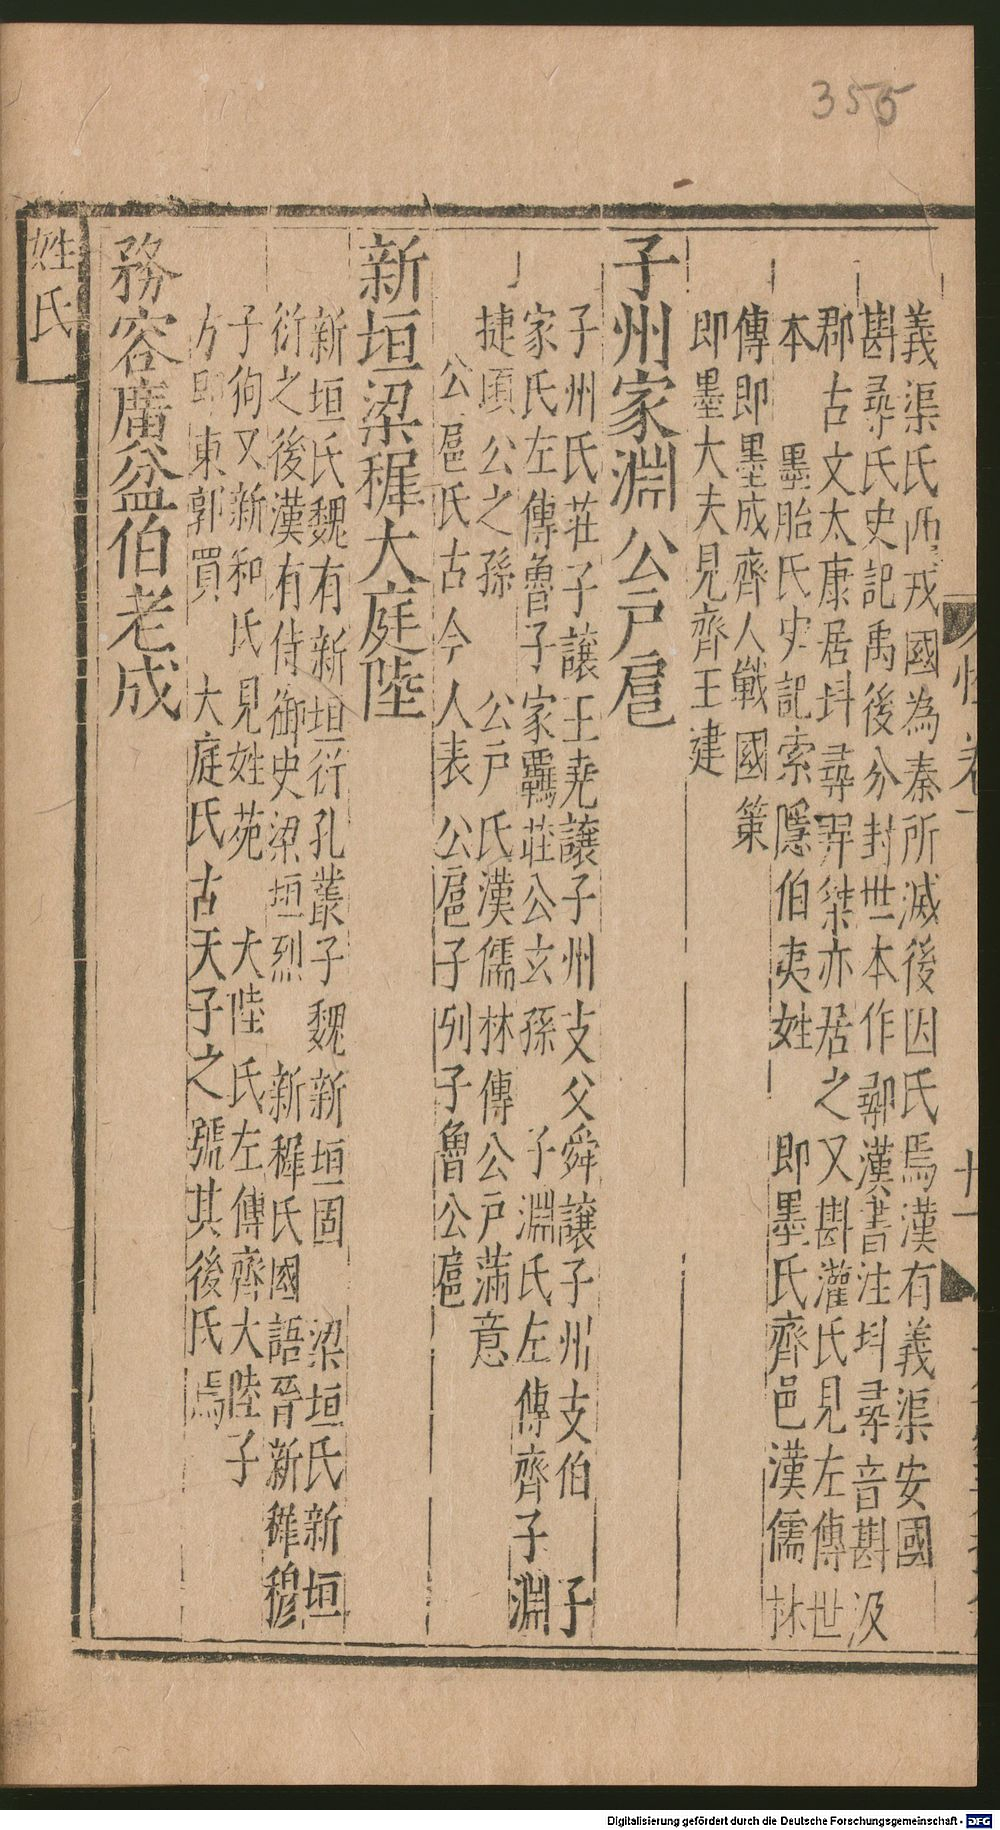 355
義渠氏西戎國為秦所滅後因氏焉漢有義渠安國
斟尋氏史記禹後分封世本作鄩漢書注斟尋音斟汲
郡古文太康居斟尋羿桀亦居之又斟灌氏見左傳世
本 墨胎氏史記索隱伯夷姓 即墨氏齊邑漢儒林
傳即墨成齊人戰國策
即墨大夫見齊王建
子州家淵公戶扈
子州氏莊子讓王堯讓子州支父舜讓子州支伯 子
家氏左傳魯子家羈莊公玄孫 子淵氏左傳齊子淵
捷頃公之孫 公戶氏漢儒林傳公戶滿意
公扈氏古今人表公扈子列子魯公扈
新垣梁穉大庭陸
新垣氏魏有新垣衍孔叢子魏新垣固 梁垣氏新垣
衍之後漢有侍御史梁垣烈 新穉氏國語晉新穉穆
子狗又新和氏見姓苑 大陸氏左傳齊大陸子
方即東郭賈 大庭氏古天子之號其後氏焉
務容廣盆伯老成
姓氏
十一
Digitalisierung gefördert durch die Deutsche Forschungsgemeinschaft - DFG